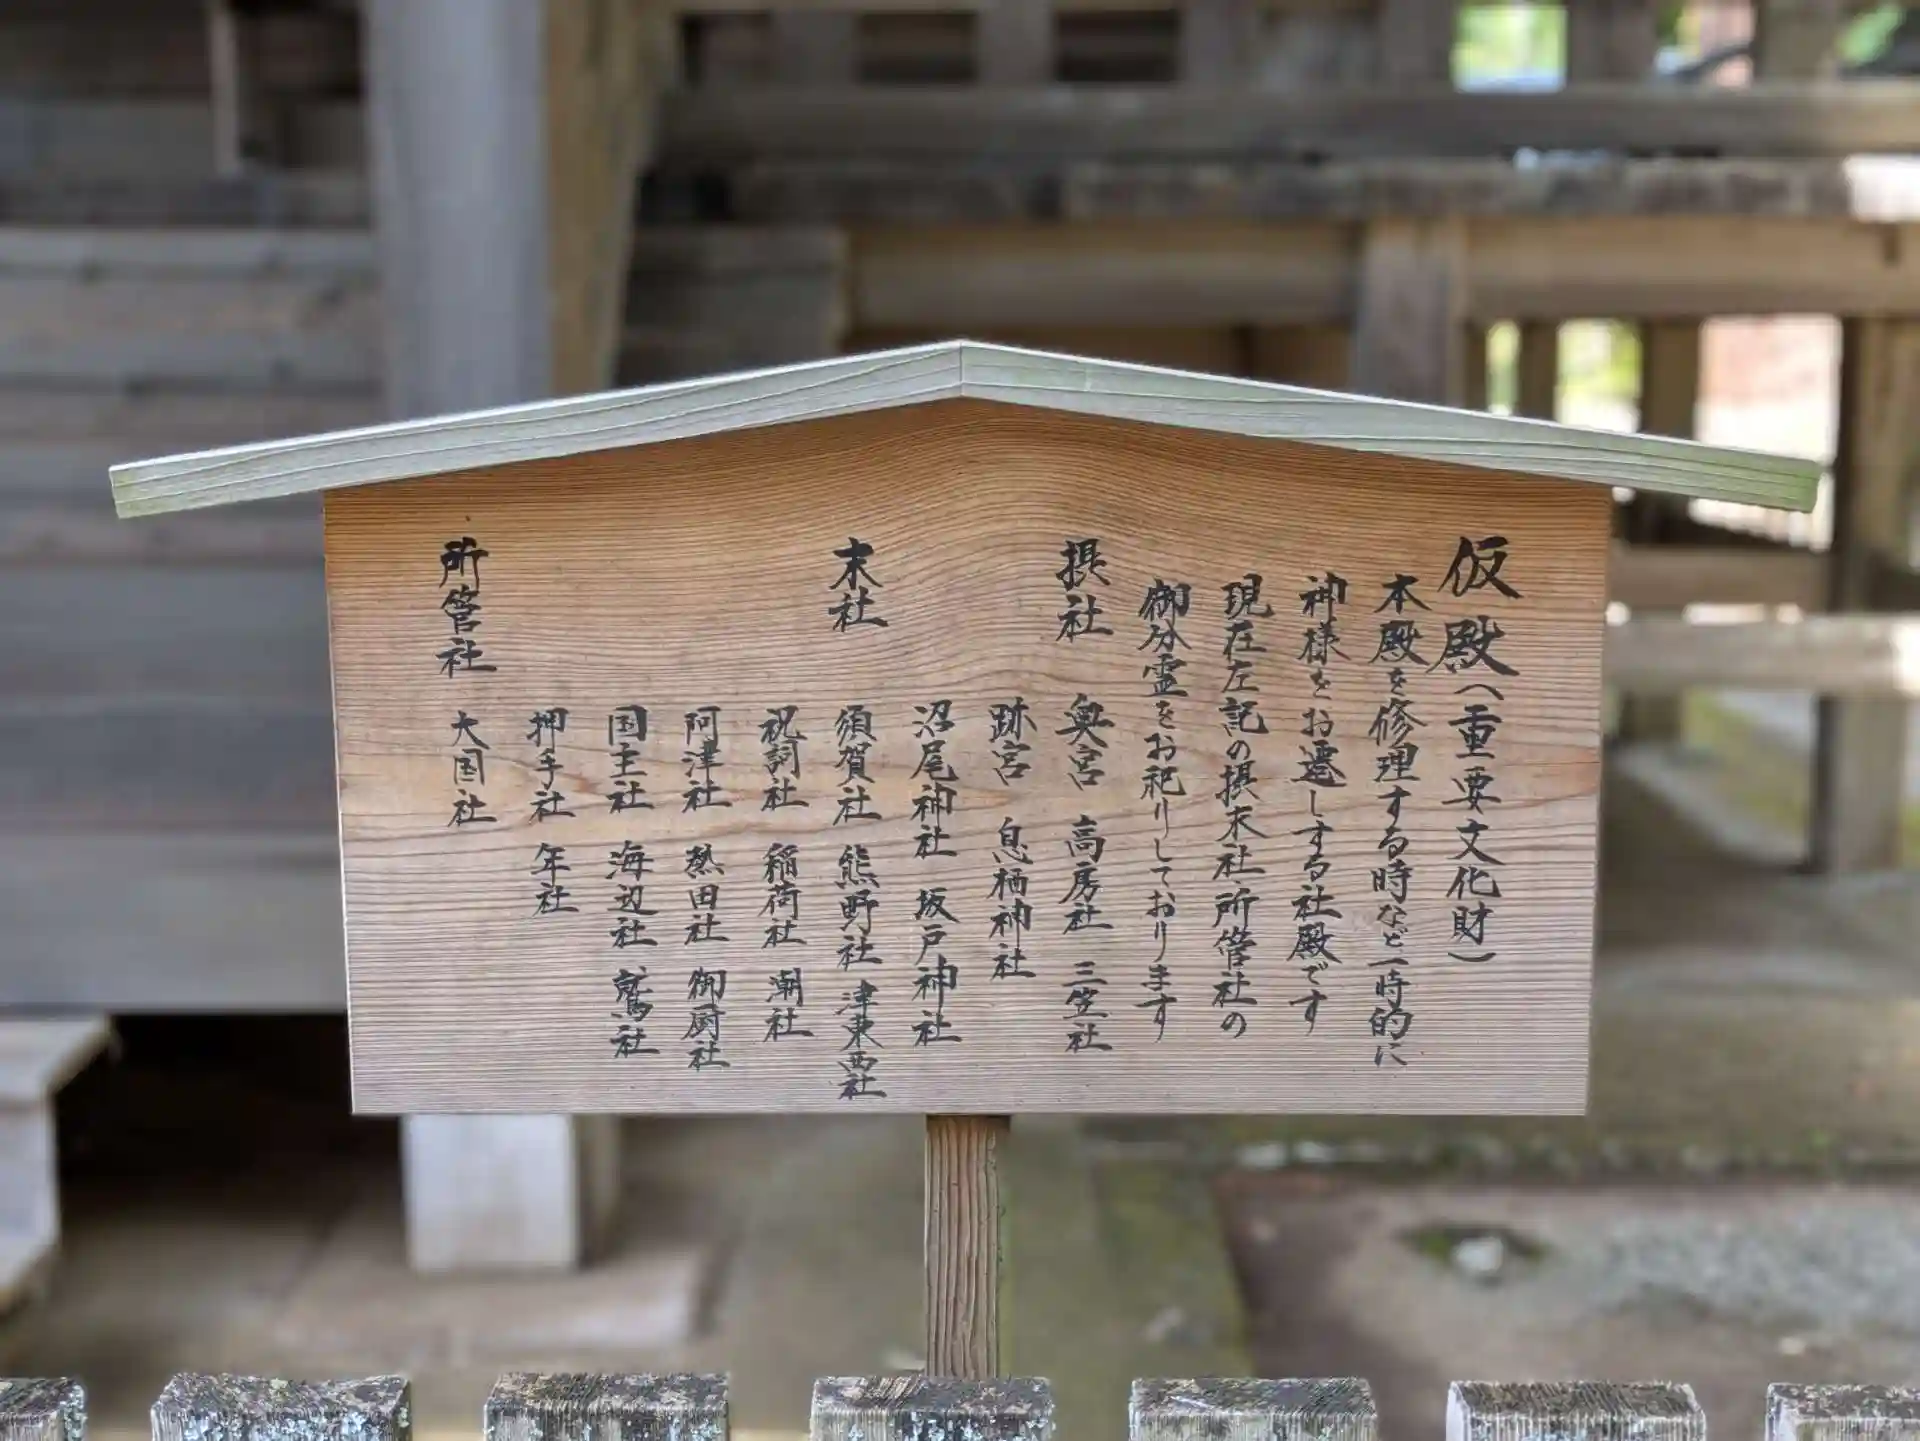 仮殿(重要文化財)
本殿を修理する時など一時的に
神様をお遷しする社殿です
現在左記の摂末社、所管社の
御分霊をお祀りしております
摂社 奥宮 高房社 三笠社
跡宮 息栖神社
沼尾神社 坂戸神社
末社 須賀社 熊野社 津東西社
祝詞社 稲荷社 潮社
阿津社 熱田社 御厨社
国主社 海辺社 鷲社
押手社 年社
所管社 大国社